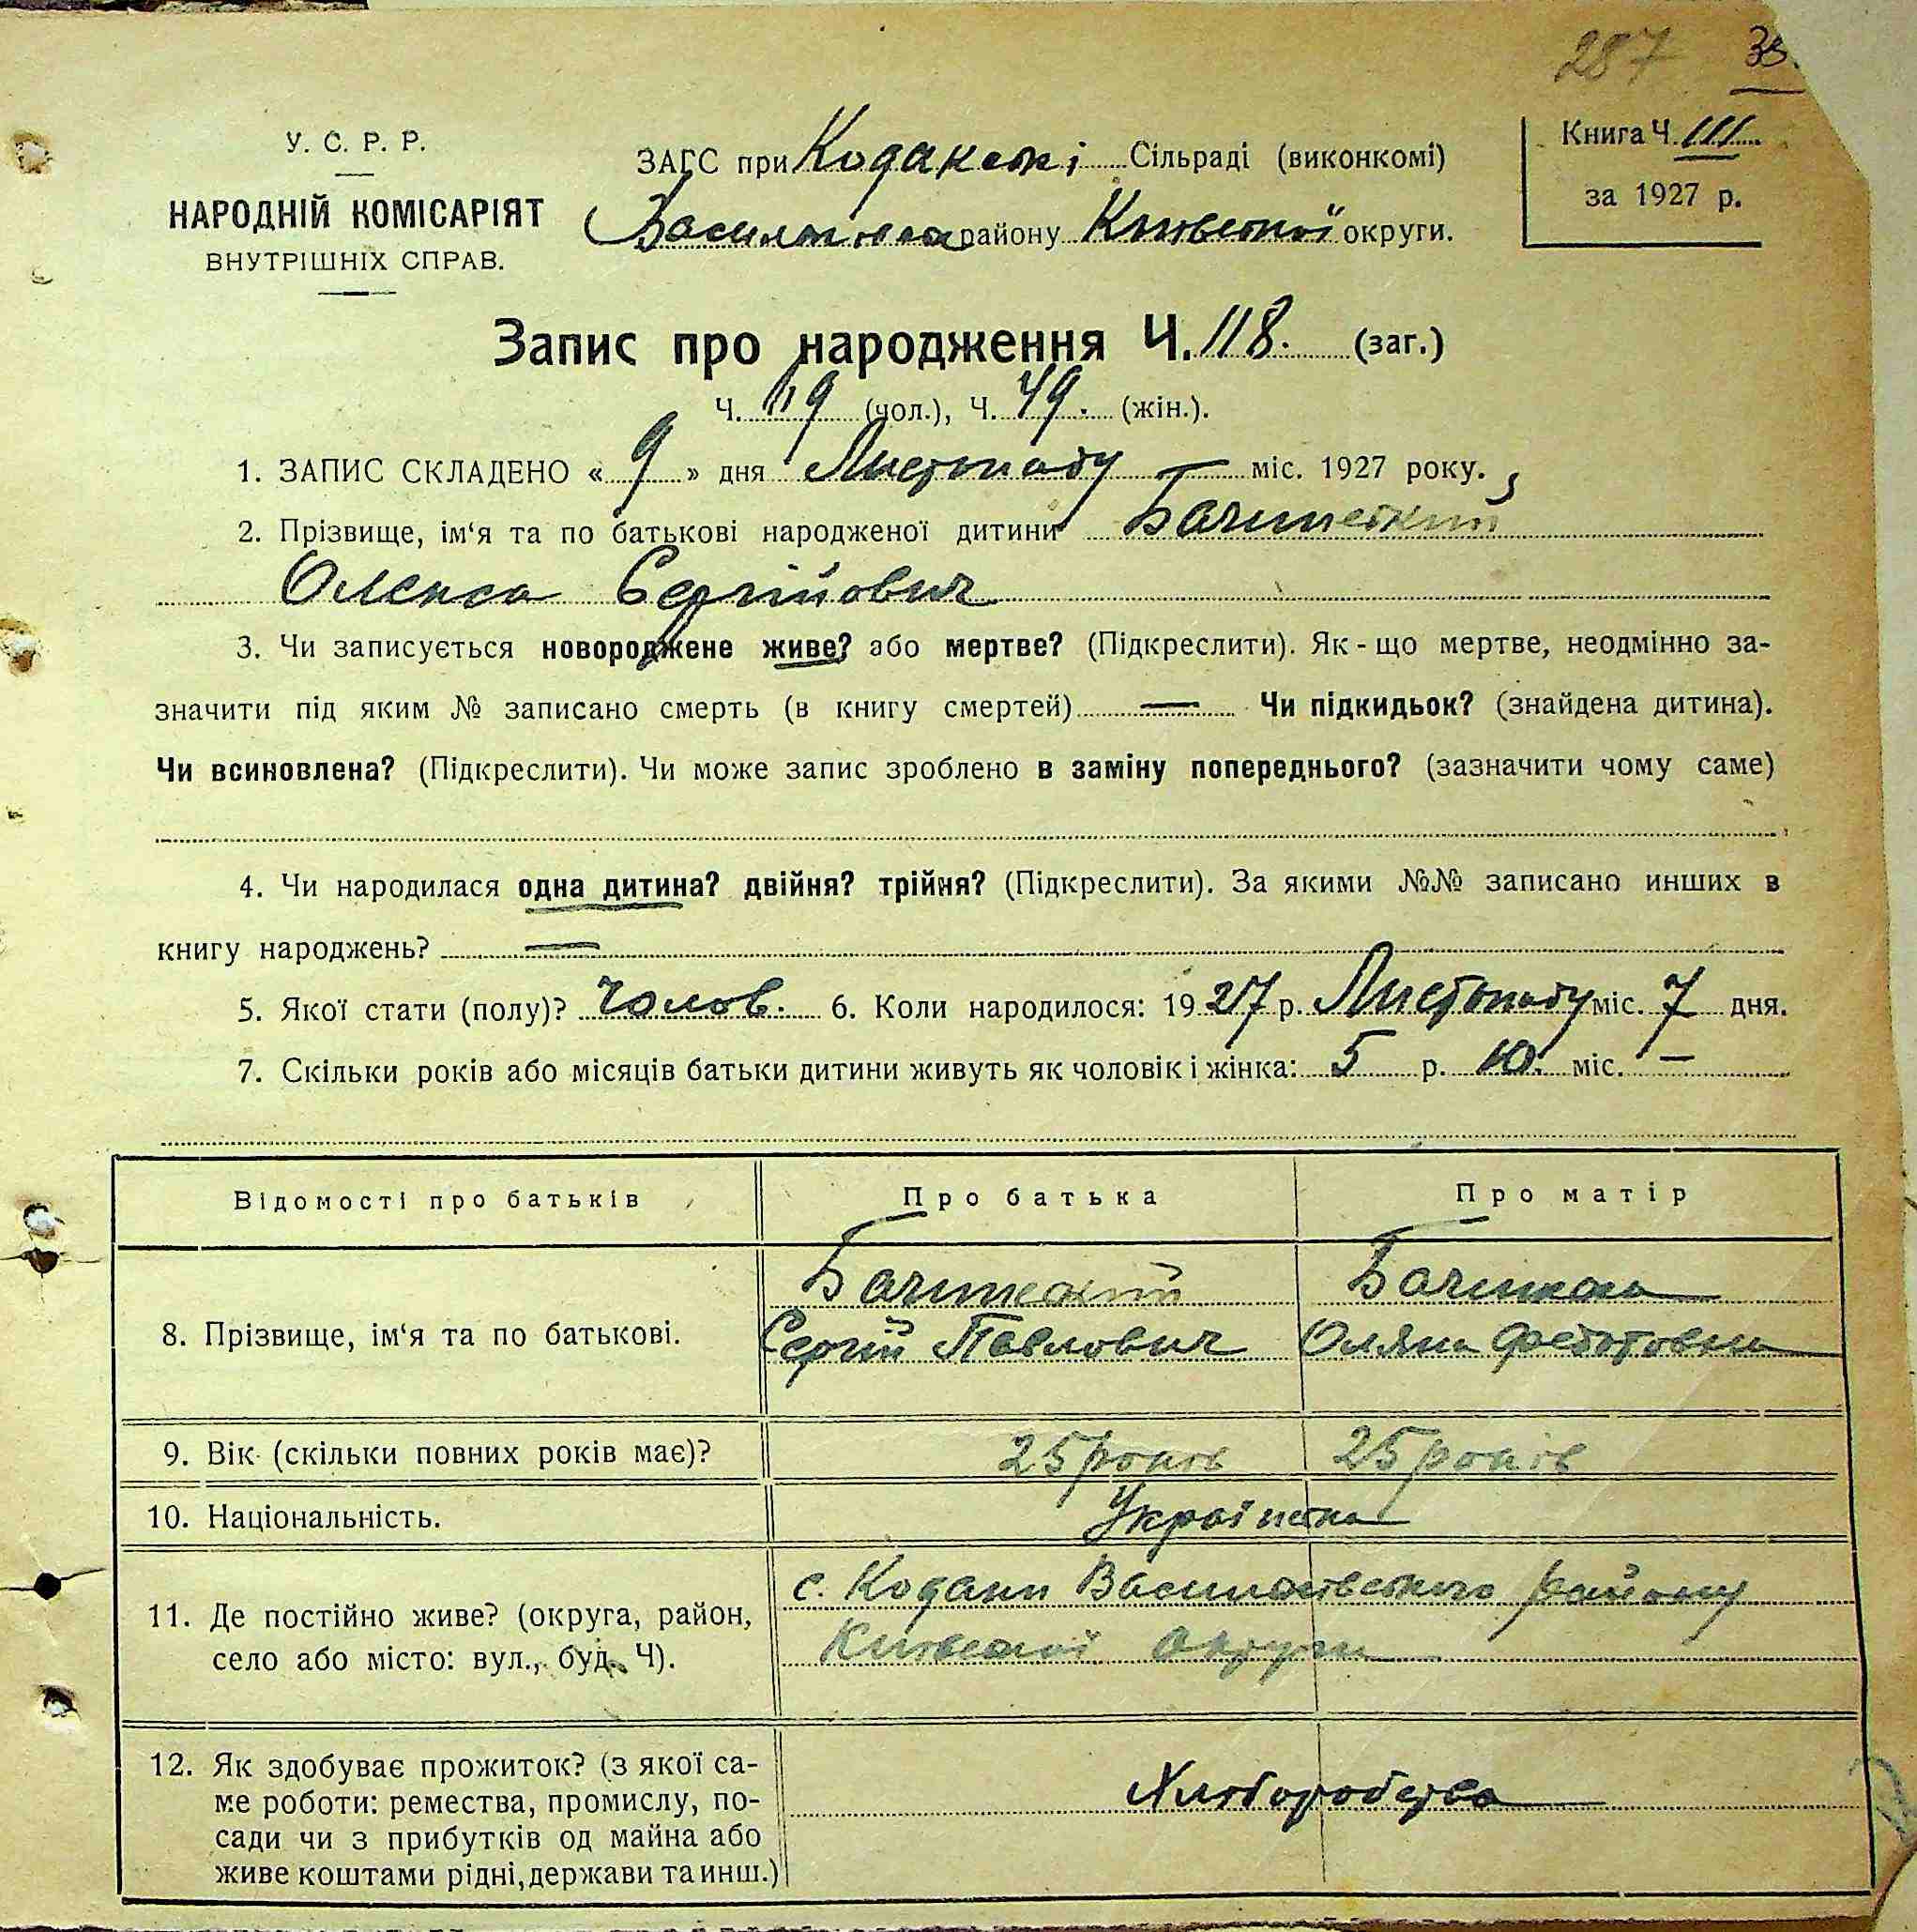 287 33.
У. С. Р. Р.
НАРОДНІЙ КОМІСАРІЯТ
ВНУТРІШНІХ СПРАВ.
ЗАГС при Кодакській Сільраді (виконкомі)
Васильків району Київської округи.
Книга Ч. III
за 1927 р.
Запис про народження Ч. 118. (заг.)
Ч. (чол.), Ч. 49. (жін.).
1. ЗАПИС СКЛАДЕНО « 9 » дня Листопаду міс. 1927 року.
2. Прізвище, ім‘я та по батькові народженої дитини Бачинський
Олекса Сергійович
3. Чи записується новороджене живе? або мертве? (Підкреслити). Як - що мертве, неодмінно за-
значити під яким № записано смерть (в книгу смертей) — Чи підкидьок? (знайдена дитина).
Чи всиновлена? (Підкреслити). Чи може запис зроблено в заміну попереднього? (зазначити чому саме)
4. Чи народилася одна дитина? двійня? трійня? (Підкреслити). За якими №№ записано инших в
книгу народжень? —
5. Якої стати (полу)? чолов. 6. Коли народилося: 1927 р. Листопаду міс. 7 дня.
7. Скільки років або місяців батьки дитини живуть як чоловік і жінка: 5 р. 10. міс. —
Відомості про батьків Про батька Про матір
Бачинський Бачинська
8. Прізвище, ім‘я та по батькові. Сергій Павлович Оляна Федотовна
9. Вік (скільки повних років має)? 25 років 25 років
10. Національність. Українська
с. Кодаки Васильківського району
11. Де постійно живе? (округа, район,
село або місто: вул., буд. Ч). Київської округи
12. Як здобуває прожиток? (з якої са-
ме роботи: ремества, промислу, по- Хліборобство
сади чи з прибутків од майна або
живе коштами рідні, держави та инш.)